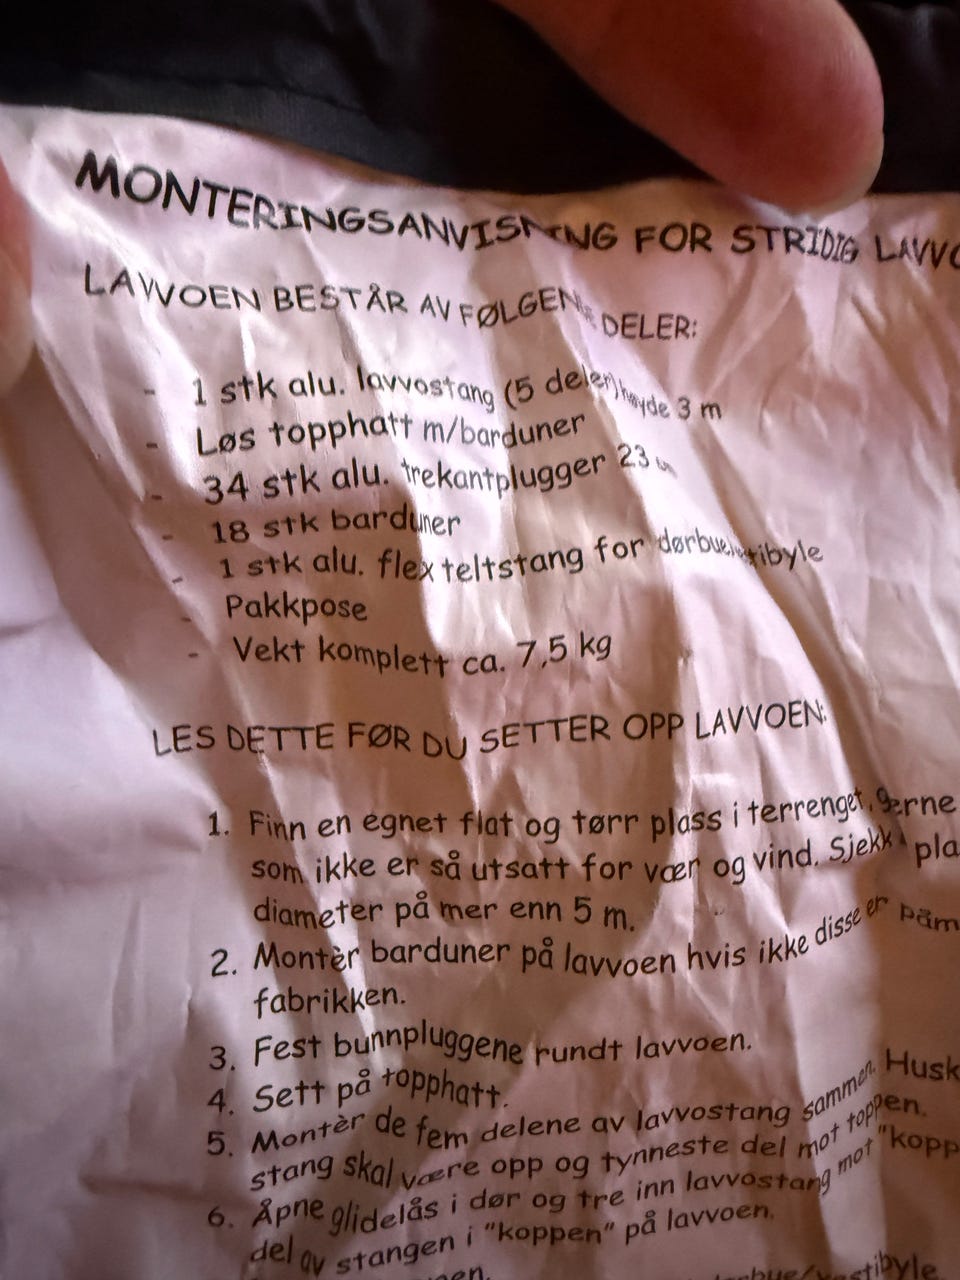 MONTERINGSANVISNING FOR STRIDIG LAVVO
LAVVOEN BESTÅR AV FØLGENDE DELER:
- 1 stk alu. lavvostang (5 deler) høyde 3 m
- Løs topphatt m/barduner
- 34 stk alu. trekantplugger 23 cm
- 18 stk barduner
- 1 stk alu. flex teltstang for dørbue/vestibyle
- Pakkpose
- Vekt komplett ca. 7,5 kg
LES DETTE FØR DU SETTER OPP LAVVOEN:
1. Finn en egnet flat og tørr plass i terrenget, gjerne
som ikke er så utsatt for vær og vind. Sjekk pla
diameter på mer enn 5 m.
2. Montèr barduner på lavvoen hvis ikke disse er påm
fabrikken.
3. Fest bunnpluggene rundt lavvoen.
4. Sett på topphatt.
5. Montèr de fem delene av lavvostang sammen. Husk
stang skal være opp og tynneste del mot toppen.
6. Åpne glidelås i dør og tre inn lavvostang mot "kopp
del av stangen i "koppen" på lavvoen.